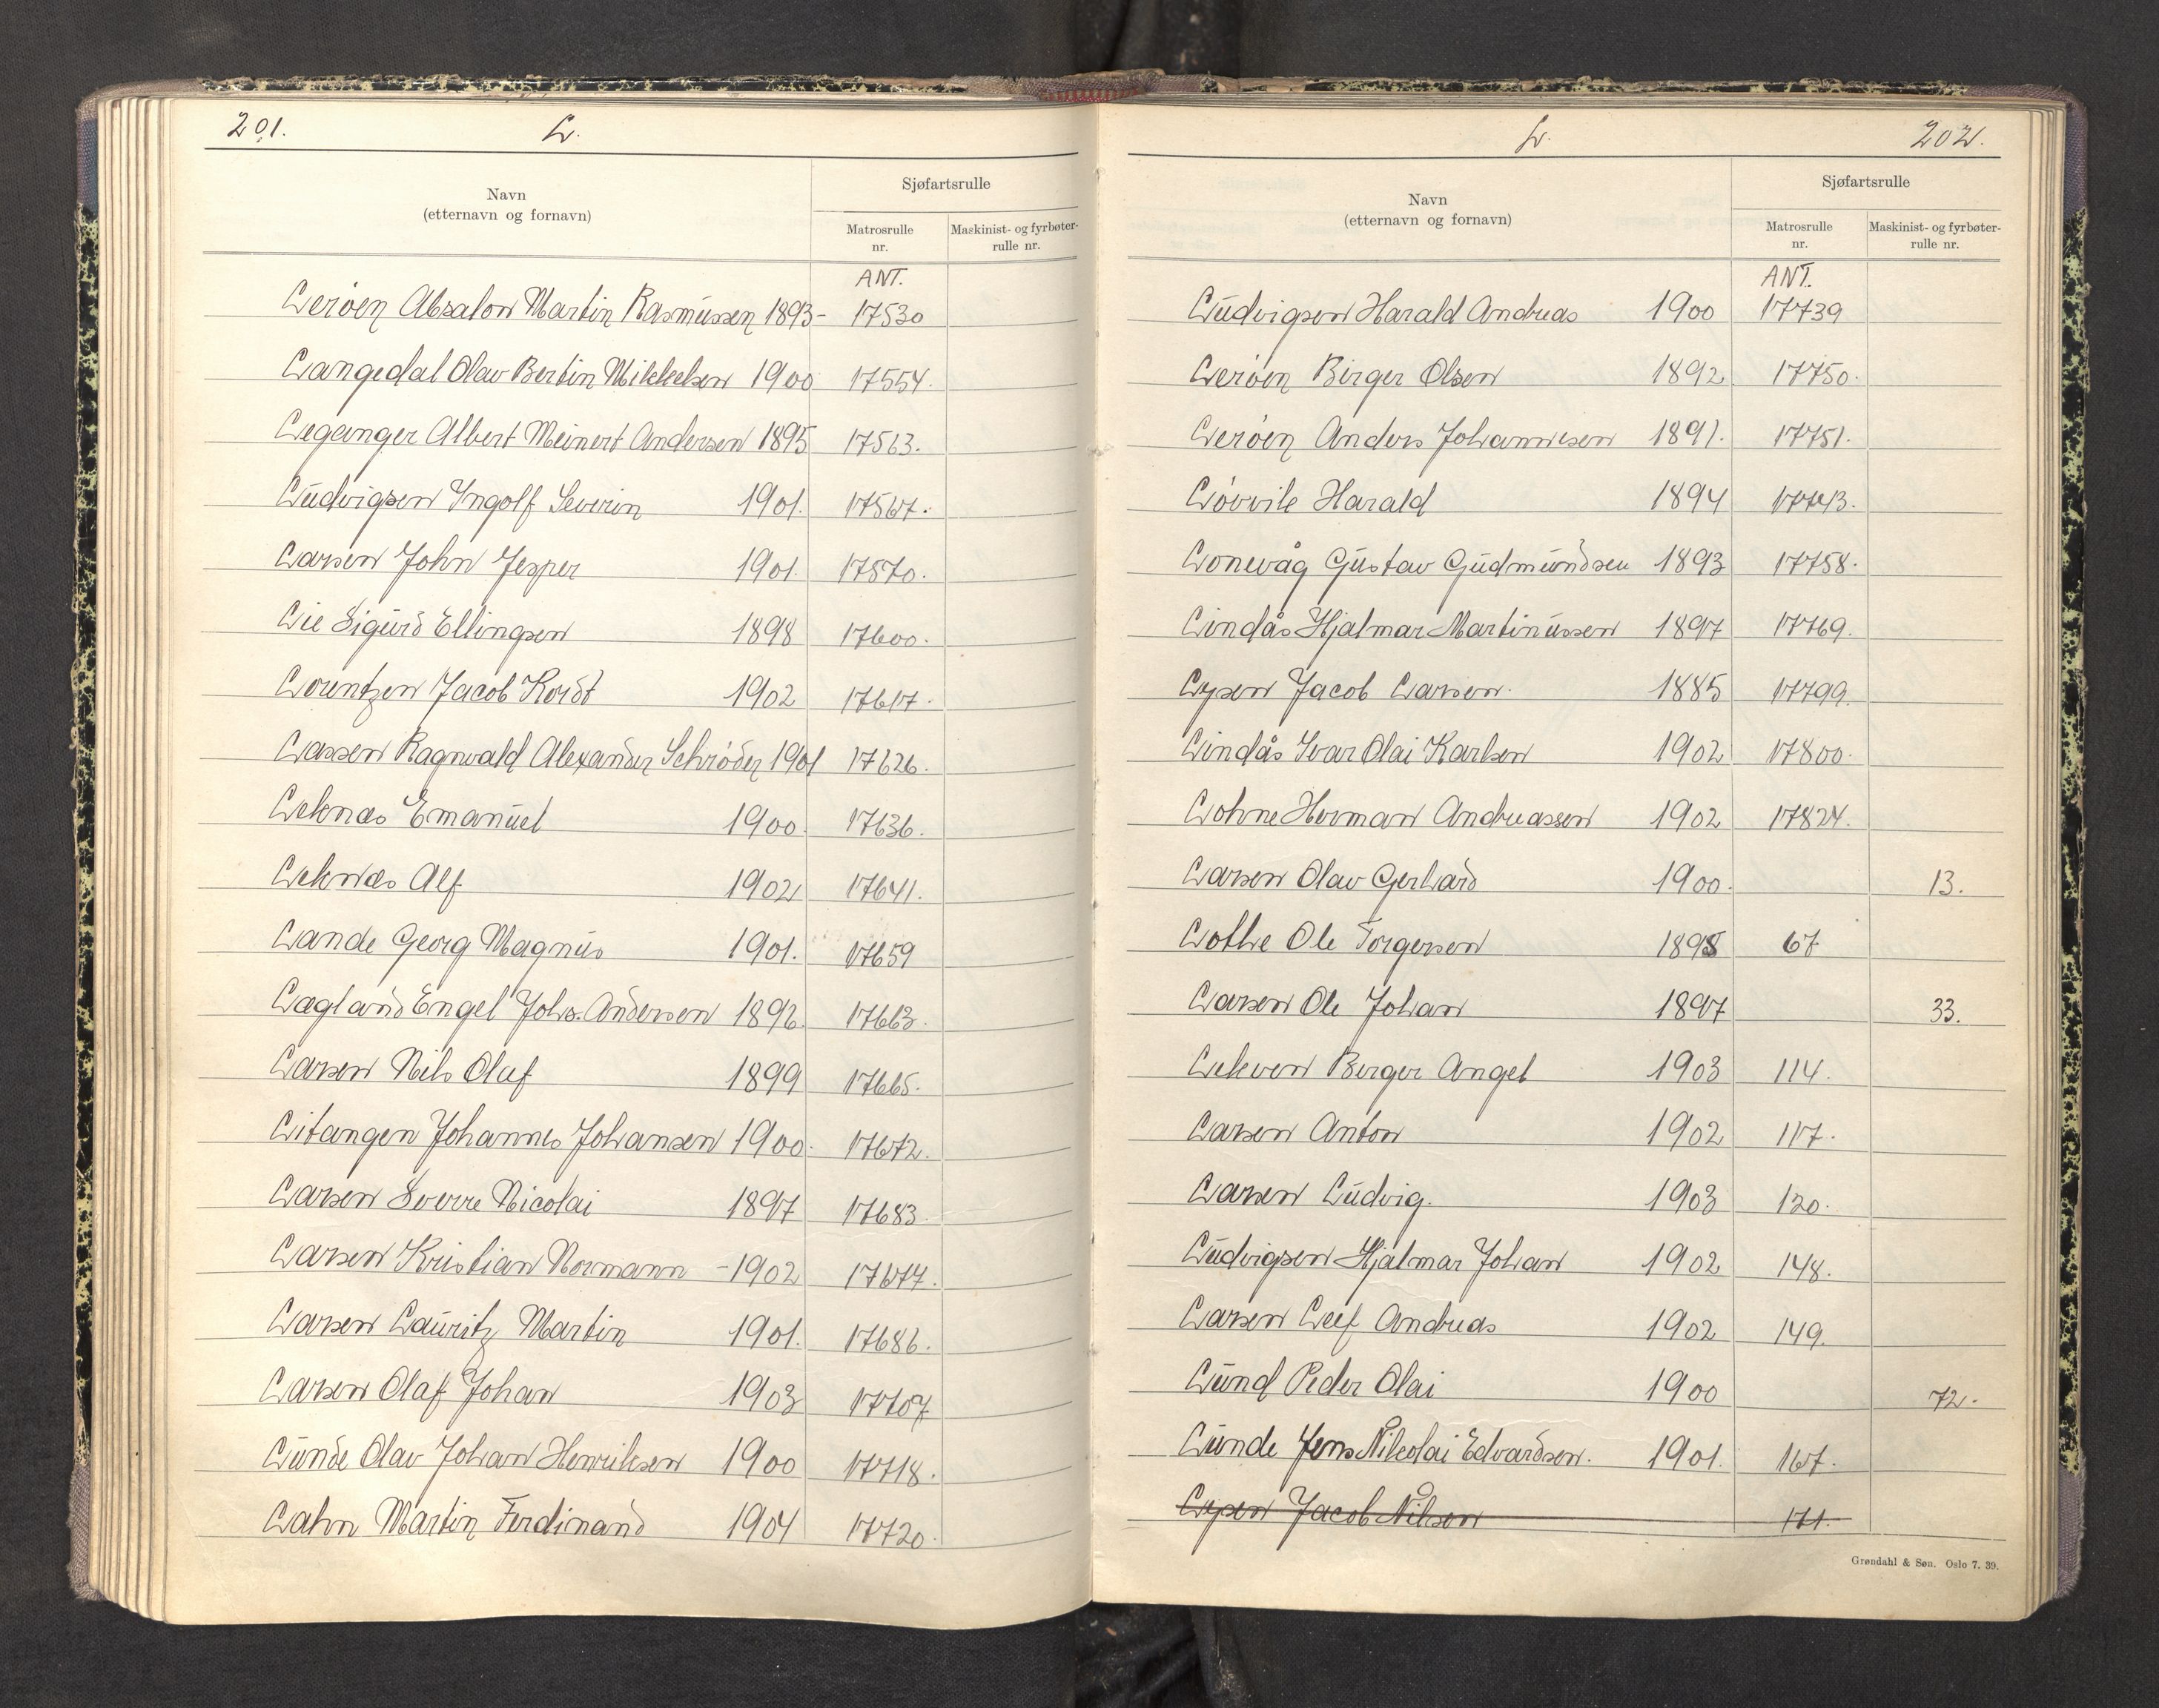 201. L.
Navn
(etternavn og fornavn)
Sjøfartsrulle
Matrosrulle nr.
Maskinist- og fyrbøter-rulle nr.
ANT.
Lerøen Absalon Martin Rasmussen 1893- 17530
Langedal Olav Bertin Mikkelsen 1900 17554.
Leganger Albert Meinert Andersen 1895 17563.
Ludvigsen Ingolf Severin 1901. 17567.
Larsen John Jesper 1901. 17570.
Lie Sigurd Ellingsen 1898 17600.
Lorentzen Jacob Kordt 1902 17617.
Lassen Ragnvald Alexander Schrøder 1901 17626.
Leknæs Emanuel 1900. 17636.
Leknæs Alf 1902 17641.
Lande Georg Magnus 1901. 17659
Lægland Engel Johs. Andersen 1892. 17663.
Larsen Nils Olaf 1899 17665.
Litangen Johannes Johansen 1900. 17672.
Larsen Sverre Nicolai 1897 17683.
Larsen Kristian Normann -1902 17677.
Larsen Lauritz Martin 1901. 17686.
Larsen Olaf Johan 1903 17707
Lunde Olav Johan Henriksen 1900 17718.
Lahn Martin Ferdinand 1904 17720.
L. 202.
Navn
(etternavn og fornavn)
Sjøfartsrulle
Matrosrulle nr.
Maskinist- og fyrbøter-rulle nr.
ANT.
Ludvigsen Harald Andreas 1900 17739
Lerøen Birger Olsen 1892 17750.
Lerøen Anders Johannesen 1891. 17751.
Løvvik Harald 1894 17743.
Lonevåg Gustav Gudmundsen 1893 17758.
Lindås Hjalmar Martinussen 1897 17769.
Lysen Jacob Larsen. 1885 17799.
Lindås Ivar Olai Karlsen 1902 17800.
Lohne Herman Andreassen 1902 17824.
Larsen Olav Gerhard 1900. 13.
Lothe Ole Torgersen 1898 67
Larsen Ole Johan 1897 33.
Lekven Berger Angel 1903 114.
Larsen Anton 1902 117.
Larsen Ludvig. 1903 120.
Ludvigsen Hjalmar Johan 1902 148.
Larsen Leif Andreas 1902 149.
Lund Peder Olai 1900 72.
Lunde Jens Nikolai Edvardsen. 1901. 167.
Lysen Jacob Nilsen 171.
Grøndahl & Søn. Oslo 7. 39.